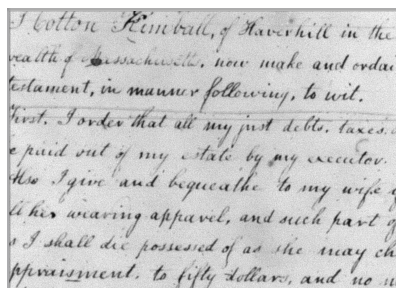 I Cotton Kimball, of Haverhill in the
wealth of Massachusetts, now make and ordai
testament, in manner following, to wit.
First, I order that all my just debts, taxes,
e paid out of my estate by my executor.
Also I give and bequeathe to my wife
ll her wearing apparel, and such part of
s I shall die possessed of as she may ch
ppraisment, to fifty dollars, and no m